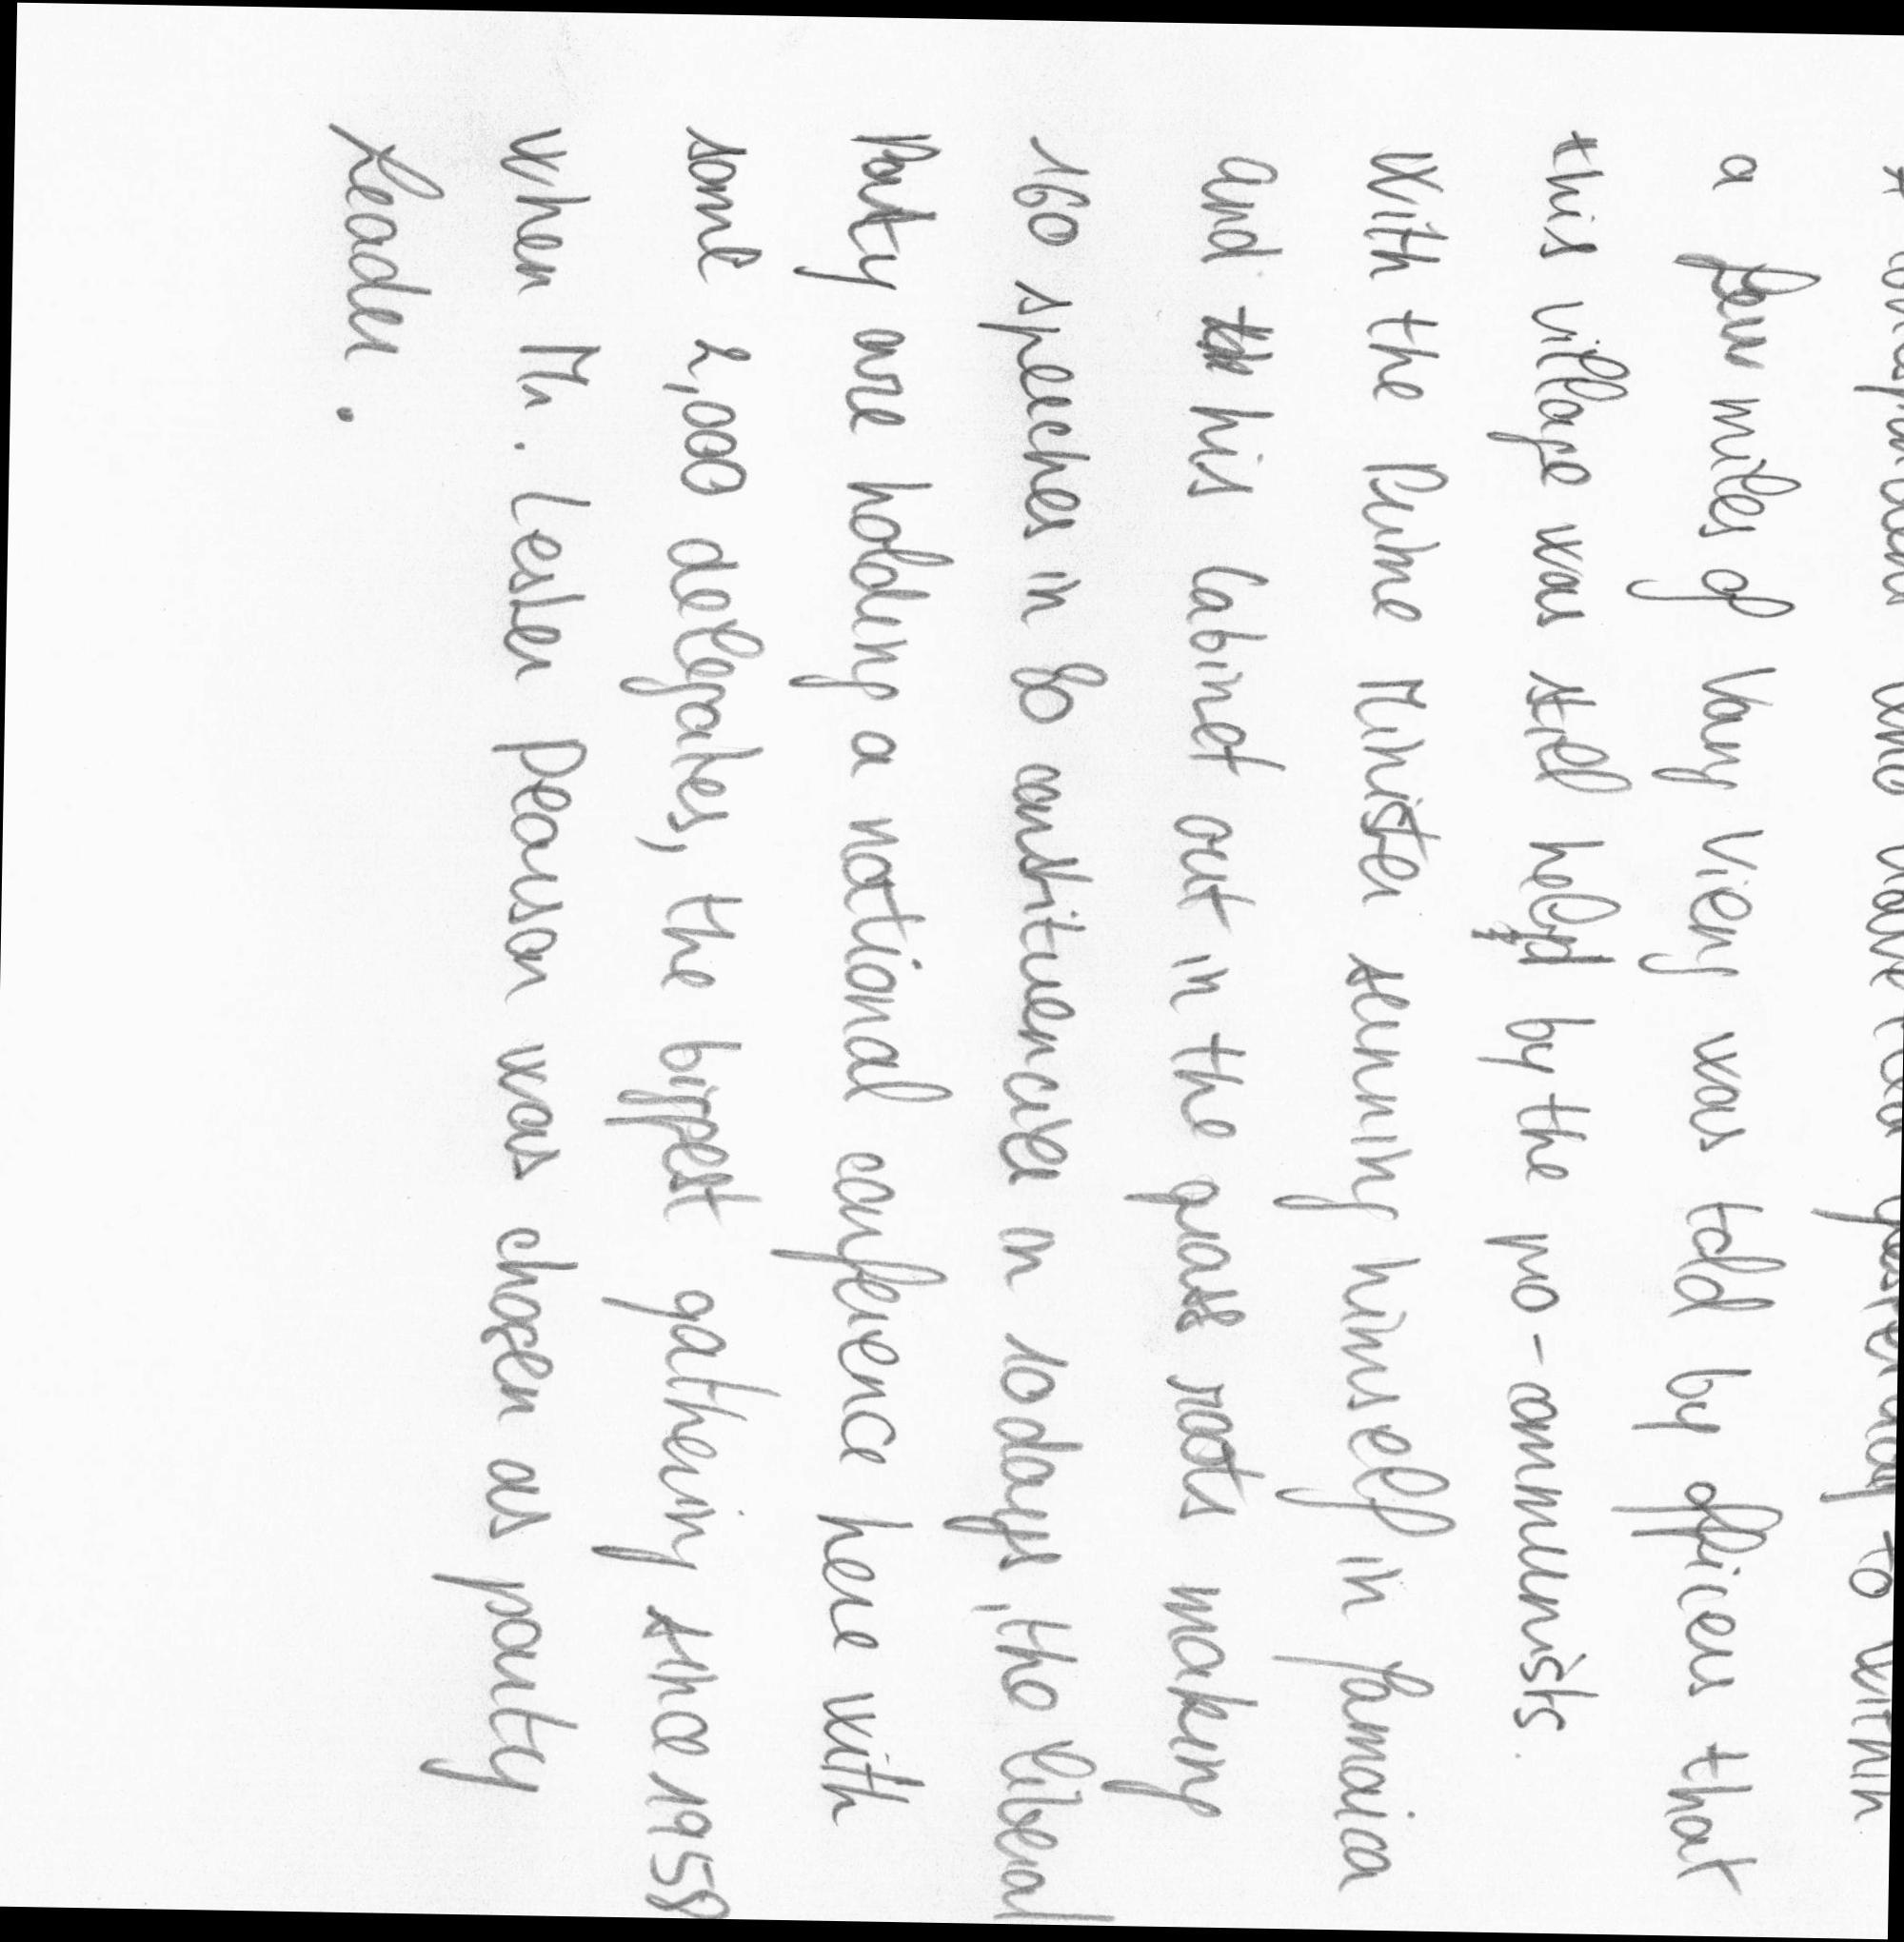 to within
a few miles of Vang Vieng was told by officers that
this village was still held by the pro-communists.
With the Prime Minister sunning himself in Jamaica
and his Cabinet out in the grass roots making
160 speeches in 80 constituencies in 10 days, the liberal
Party are holding a national conference here with
some 2,000 delegates, the biggest gathering since 1958
when Mr. Lester Pearson was chosen as party
Leader.